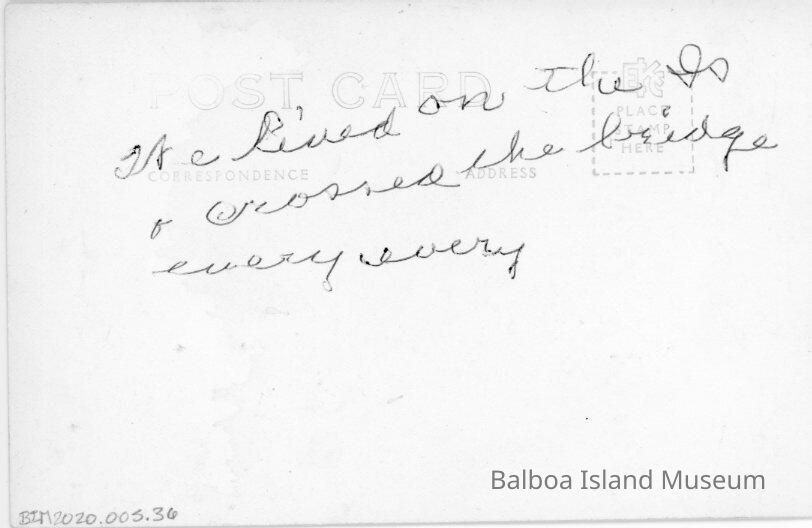 POST CARD
PLACE
STAMP
HERE
CORRESPONDENCE
ADDRESS
We lived on the Is
& crossed the bridge
every every
Balboa Island Museum
BIM2020.005.36